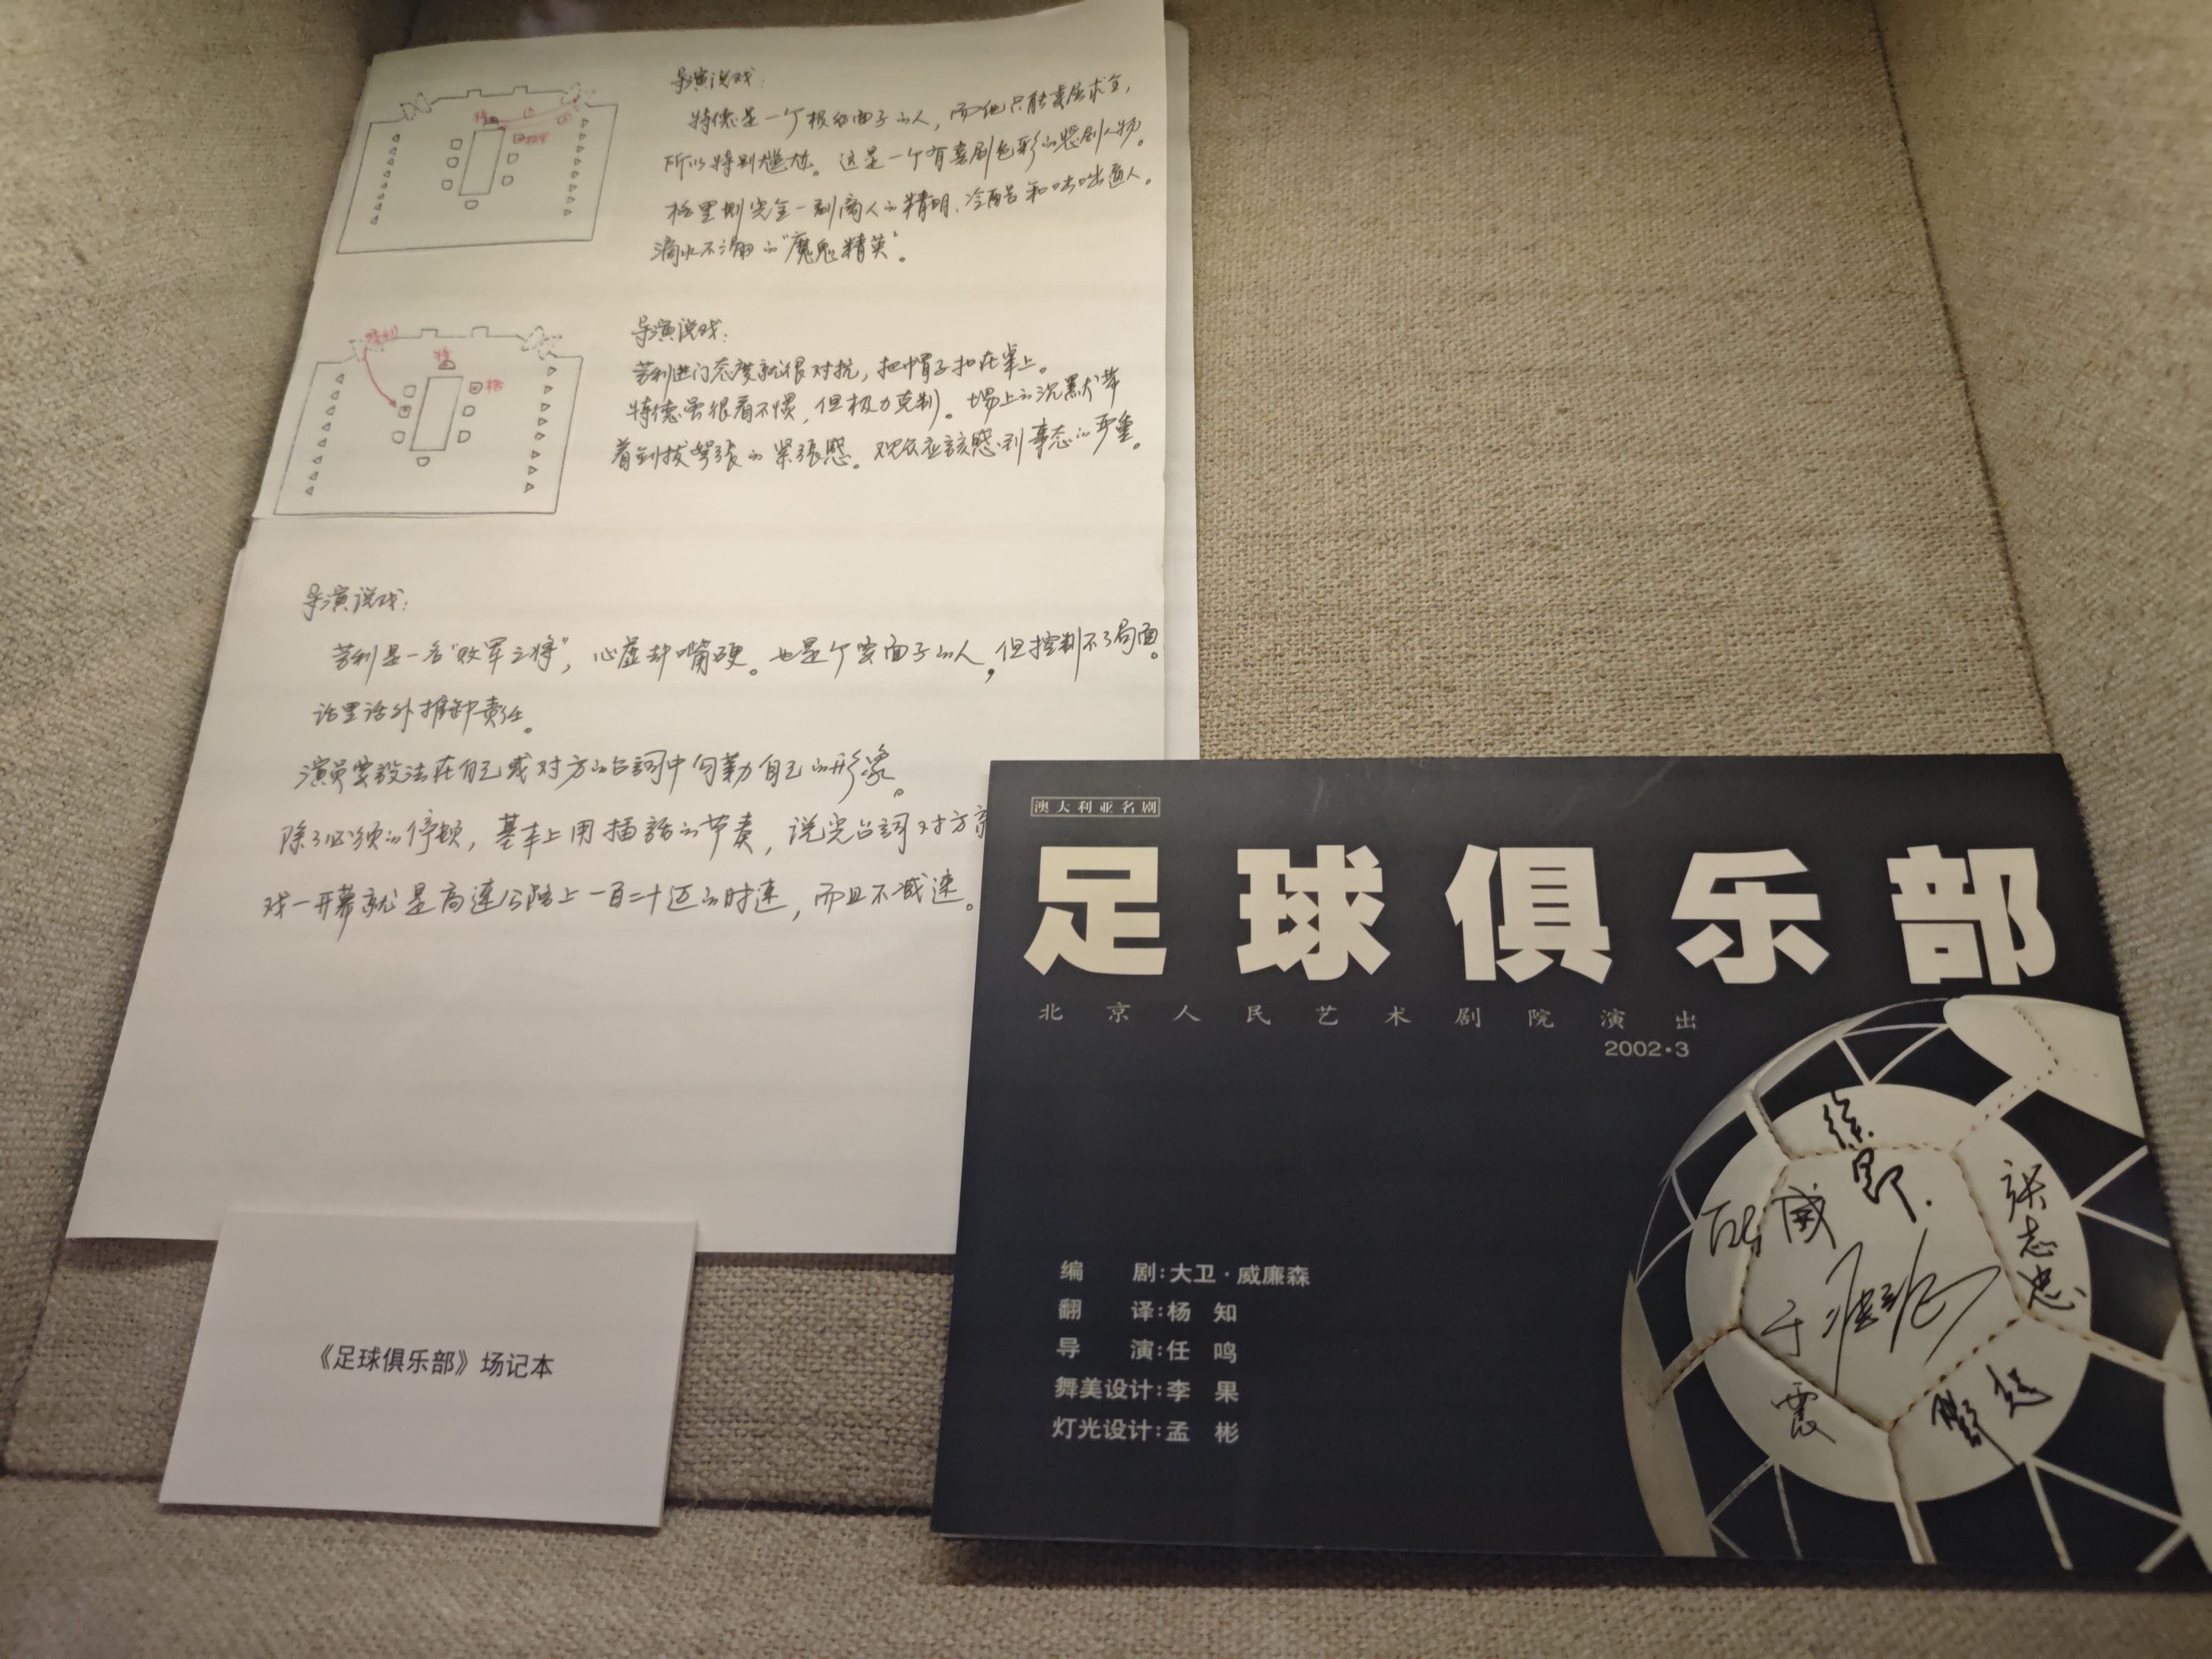 导演说戏：
特德是一个极爱面子的人，而他只能委屈求全，
所以特别尴尬。这是一个有喜剧色彩的悲剧人物。
格里则完全一副商人的精明、冷酷和咄咄逼人。
滴水不漏的“魔鬼精英”。
特
格
导演说戏：
劳利进门态度就很对抗，把帽子扣在桌上。
特德虽很看不惯，但极力克制。场上的沉默带
着剑拔弩张的紧张感。观众应该感到事态的严重。
劳利
特
格
导演说戏：
劳利是一名“败军之将”，心虚却嘴硬。也是个要面子的人，但控制不了局面。
话里话外推卸责任。
演员要设法在自己或对方的台詞中勾勒自己的形象。
除了必须的停顿，基本上用插話的节奏，说完台詞对方
戏一开幕就是高速公路上一百二十迈的时速，而且不减速。
《足球俱乐部》场记本
澳大利亚名剧
足球俱乐部
北京人民艺术剧院演出
2002·3
编 剧：大卫·威廉森
翻 译：杨 知
导 演：任 鸣
舞美设计：李 果
灯光设计：孟 彬
张志忠
震